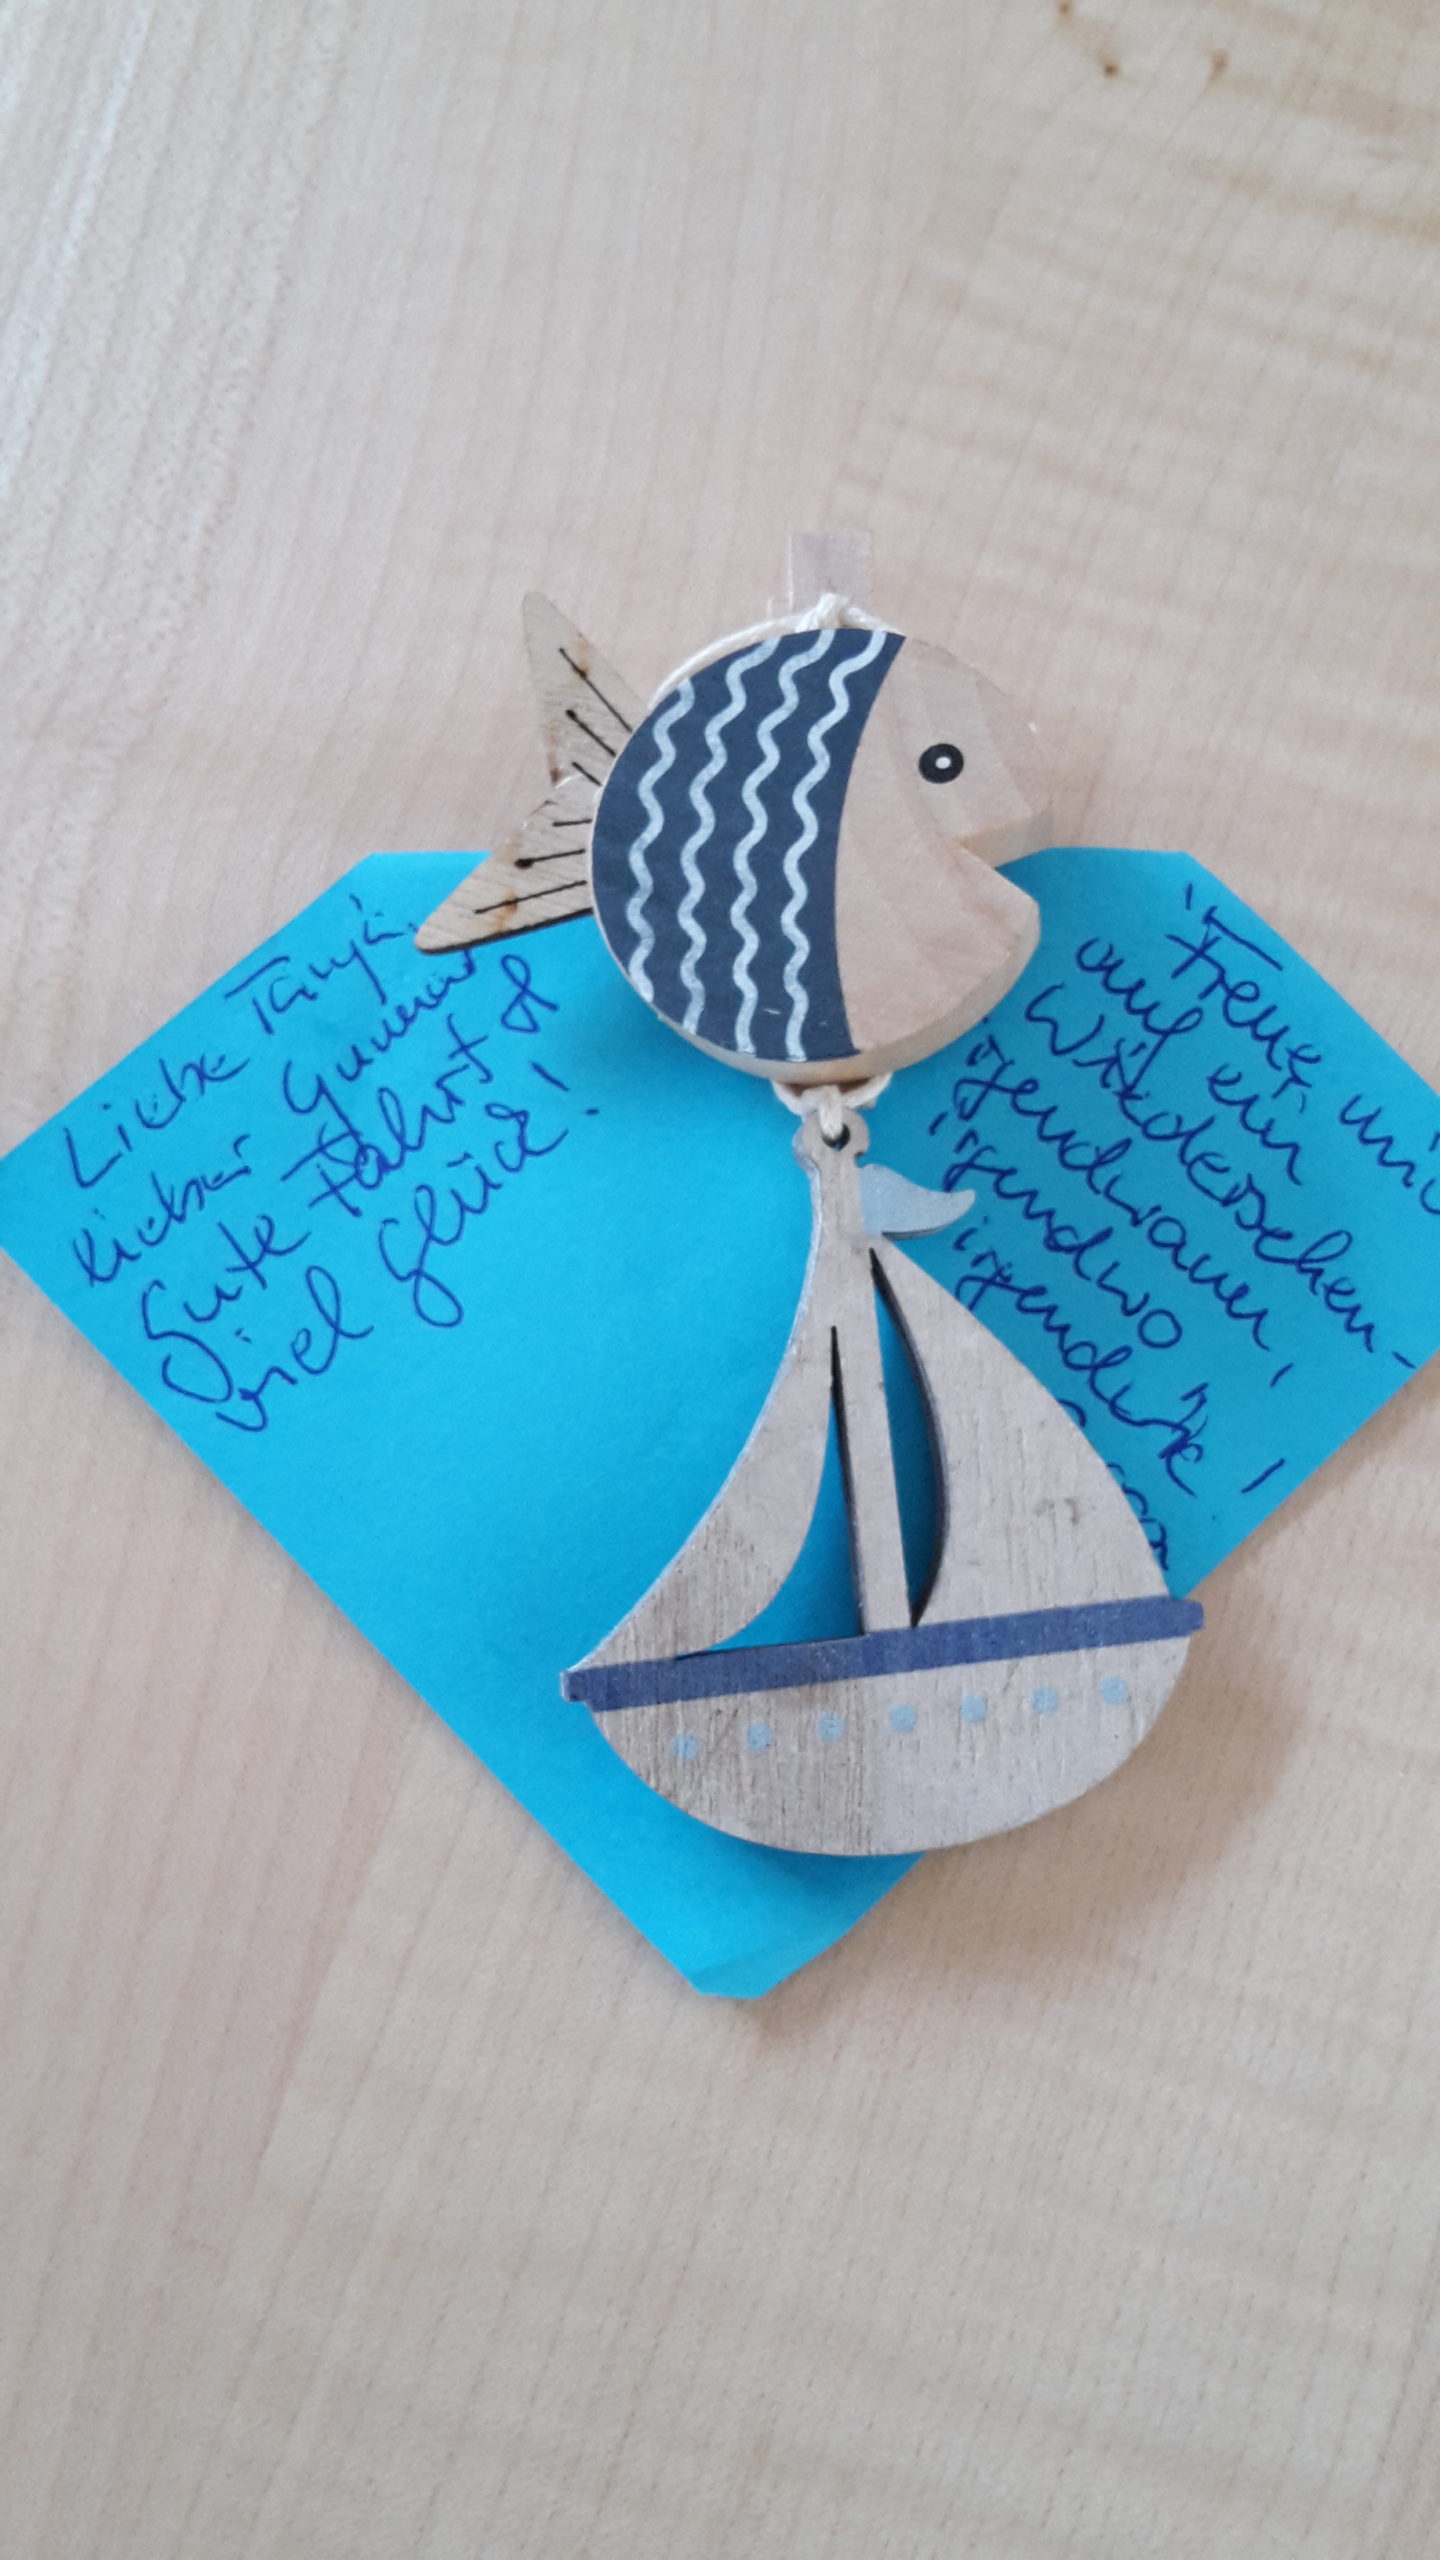 Liebe Tanja,
lieber Gunnar
Gute Fahrt &
viel Glück!
Freue mich
auf ein
Wiedersehen-
irgendwann,
irgendwo
irgendwie!